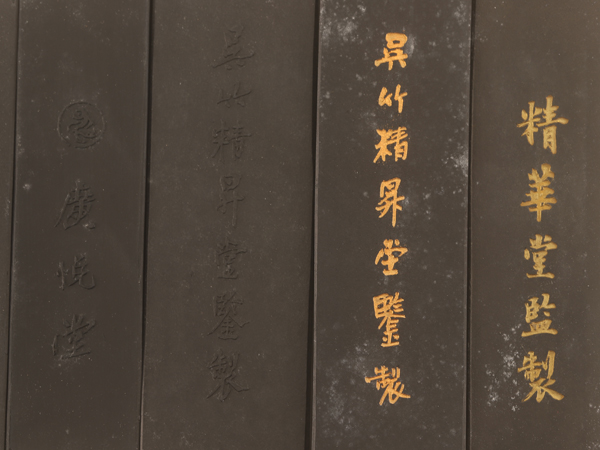 精華堂監製
呉竹精昇堂鑒製
呉竹精昇堂鑒製
廣悦堂